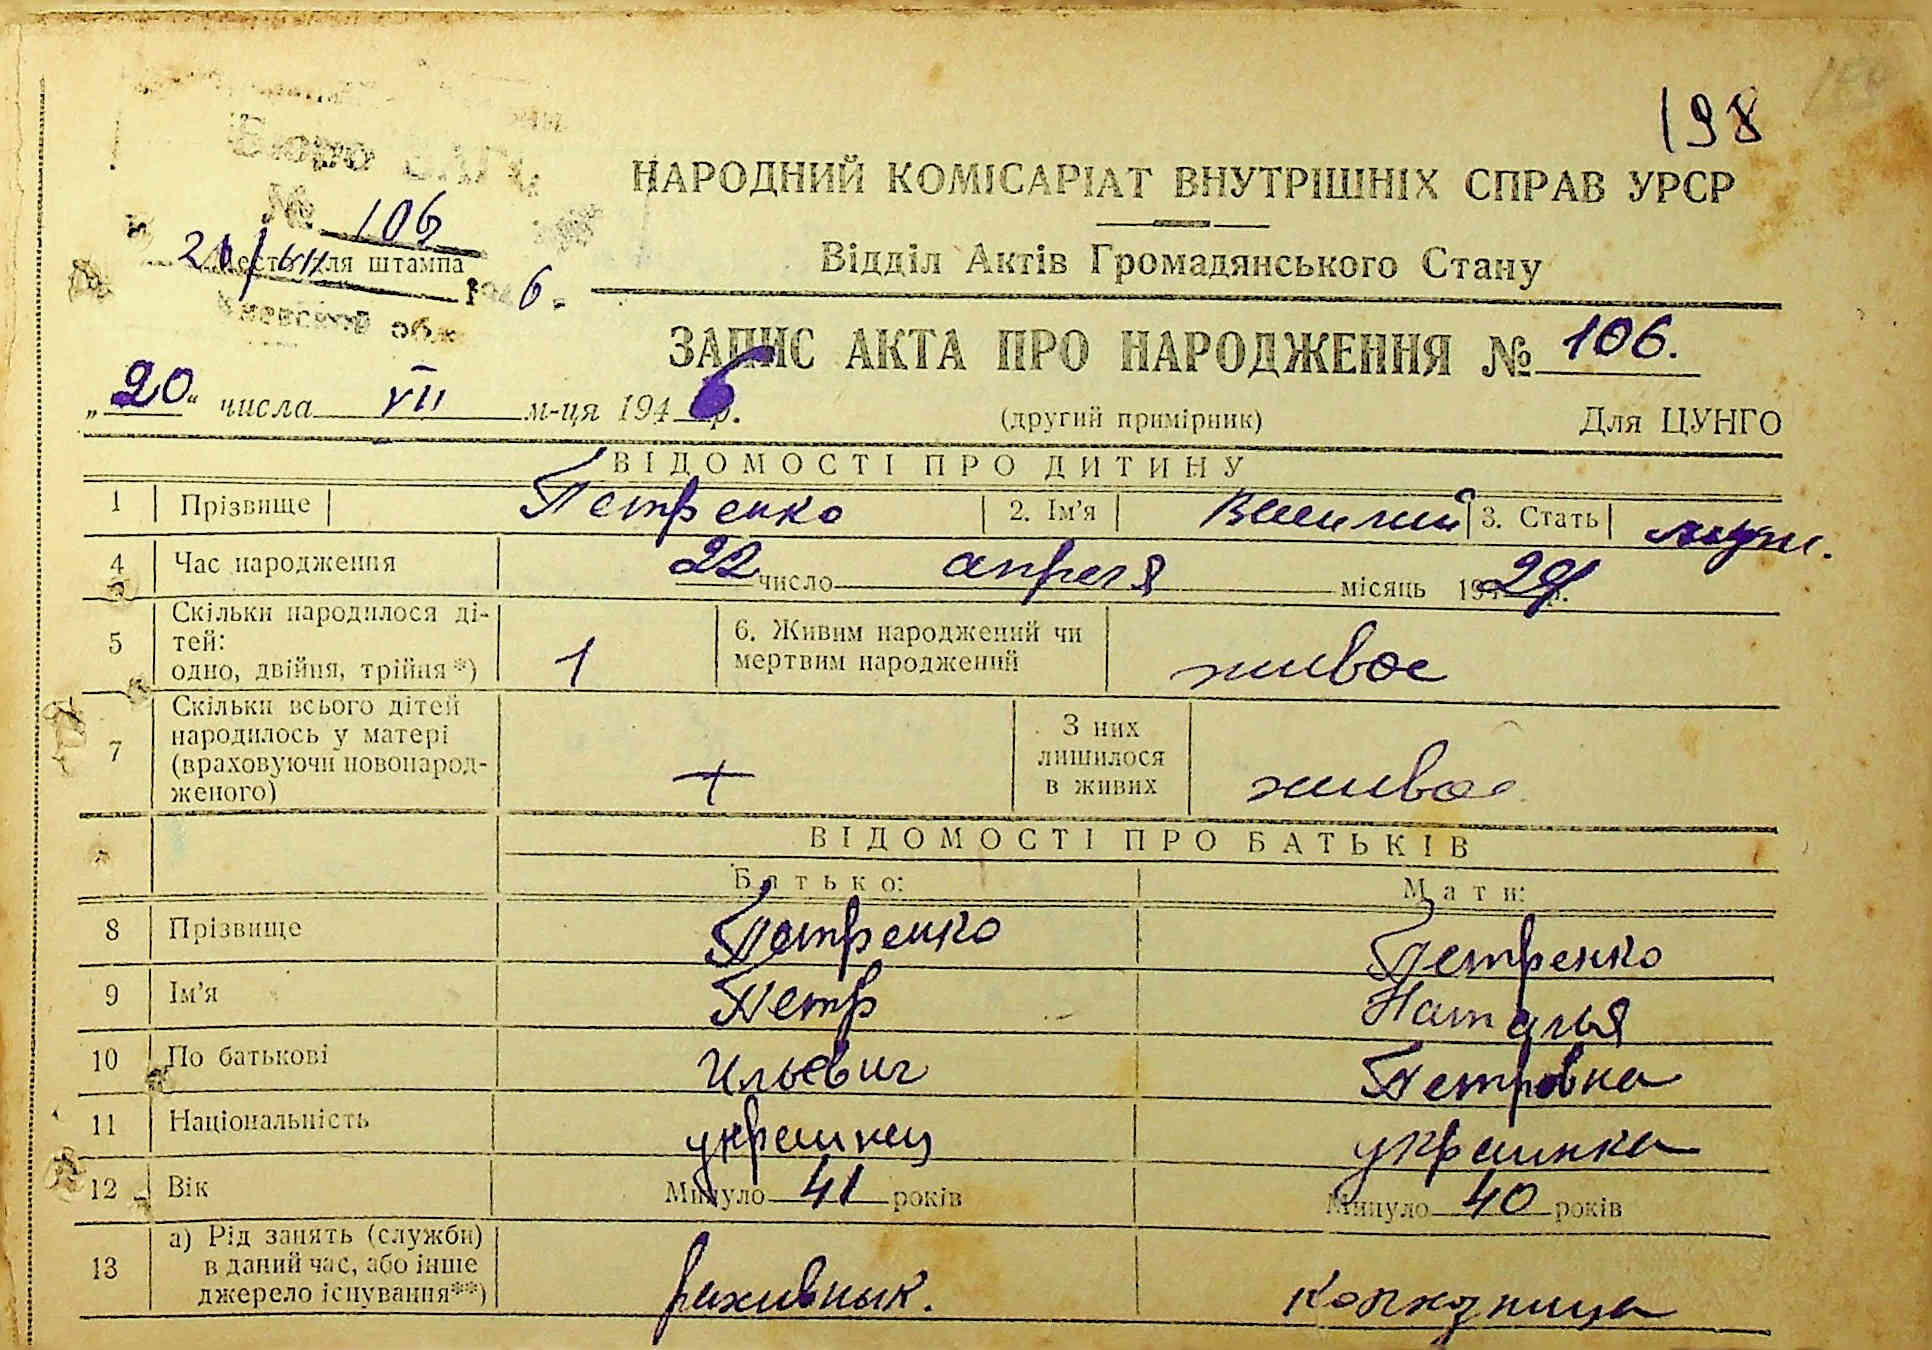 198
Бюро ЗАГС
№ 106
Место для штампа
21/VII 1946.
Киевской обл.
НАРОДНИЙ КОМІСАРІАТ ВНУТРІШНІХ СПРАВ УРСР
Відділ Актів Громадянського Стану
ЗАПИС АКТА ПРО НАРОДЖЕННЯ № 106.
„20“ числа VII м-ця 1946 р. (другий примірник) Для ЦУНГО
ВІДОМОСТІ ПРО ДИТИНУ
1 Прізвище Петренко 2. Ім'я Василий 3. Стать муж.
4 Час народження 22 число апреля місяць 1929 р.
5 Скільки народилося ді-
тей:
одно, двійня, трійня*) 1 6. Живим народжений чи
мертвим народжений живое
7 Скільки всього дітей
народилось у матері
(враховуючи новонарод-
женого) + З них
лишилося
в живих живое
ВІДОМОСТІ ПРО БАТЬКІВ
Батько: Мати:
8 Прізвище Петренко Петренко
9 Ім'я Петр Наталья
10 По батькові Ильевич Петровна
11 Національність украинец украинка
12 Вік Минуло 41 років Минуло 40 років
13 а) Рід занять (служби)
в даний час, або інше
джерело існування**) колхозница